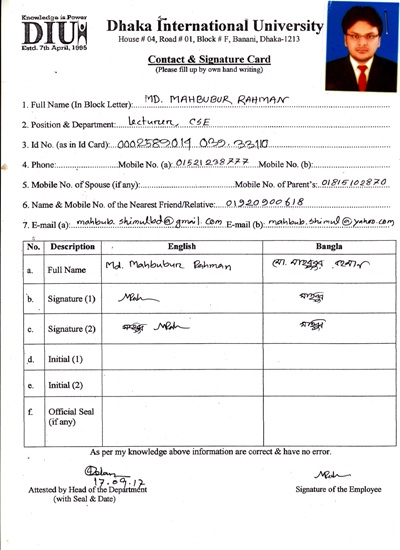 Knowledge is Power
DIU
Estd. 7th April, 1995
Dhaka International University
House # 04, Road # 01, Block # F, Banani, Dhaka-1213
Contact & Signature Card
(Please fill up by own hand writing)
1. Full Name (In Block Letter): MD. MAHBUBUR RAHMAN
2. Position & Department: Lecturer, CSE
3. Id No. (as in Id Card):
4. Phone: Mobile No. (a): 01521238777 Mobile No. (b):
5. Mobile No. of Spouse (if any): Mobile No. of Parent's: 01815102870
6. Name & Mobile No. of the Nearest Friend/Relative: 01920900618
7. E-mail (a): E-mail (b): mahbub.shimul@yahoo.com
No. Description English Bangla
a. Full Name Md. Mahbubur Rahman মো. মাহবুবুর রহমান
b. Signature (1)
c. Signature (2)
d. Initial (1)
e. Initial (2)
f. Official Seal
(if any)
As per my knowledge above information are correct & have no error.
17.09.17
Attested by Head of the Department Signature of the Employee
(with Seal & Date)